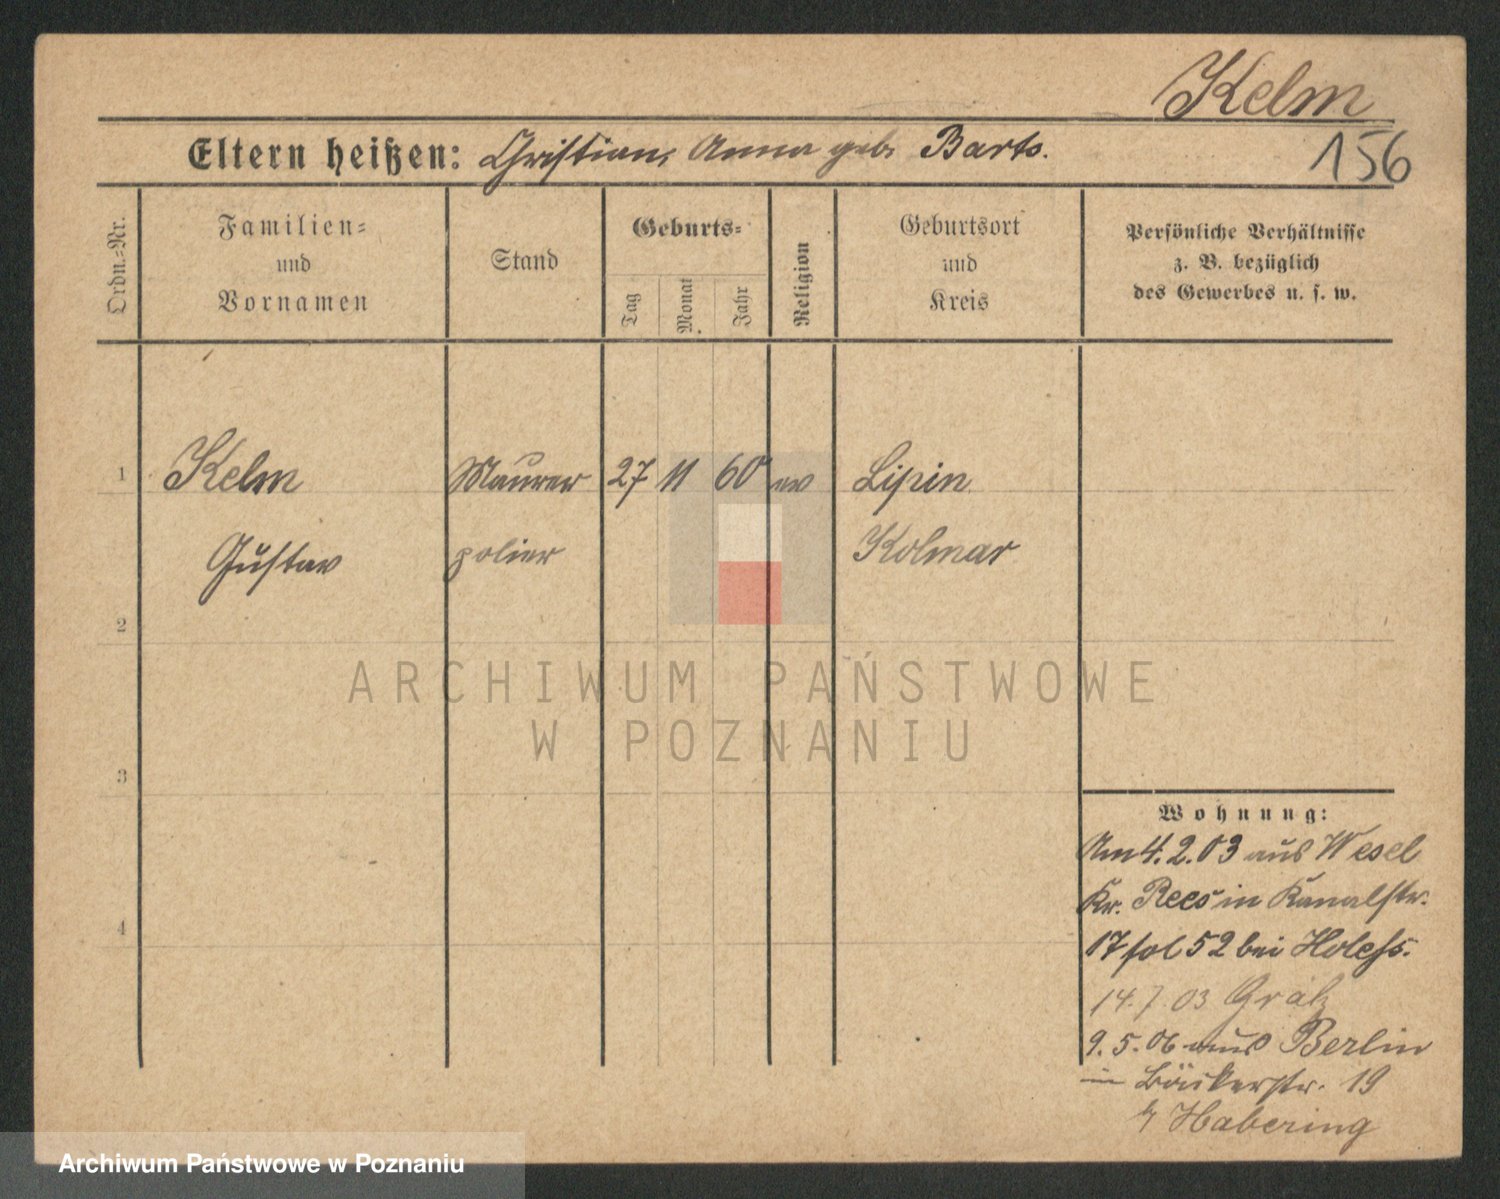 Kelm
156
Eltern heißen: Christian, Anna geb. Barts.
Ordn.-Nr.
Familien-
und
Vornamen
Stand
Geburts-
Tag
Monat
Jahr
Religion
Geburtsort
und
Kreis
Persönliche Verhältnisse
z. B. bezüglich
des Gewerbes u. s. w.
1 Kelm Maurer 27 11 60 ev Lipin
Gustav polier Kolmar
2
ARCHIWUM PAŃSTWOWE
W POZNANIU
3
Wohnung:
Am 4.2.03 aus Wesel
Kr. Rees in Kanalstr.
4
17 fol 52 bei
14.7.03 Grätz
9.5.06 aus Berlin
in Bäckerstr. 19
Habering
Archiwum Państwowe w Poznaniu